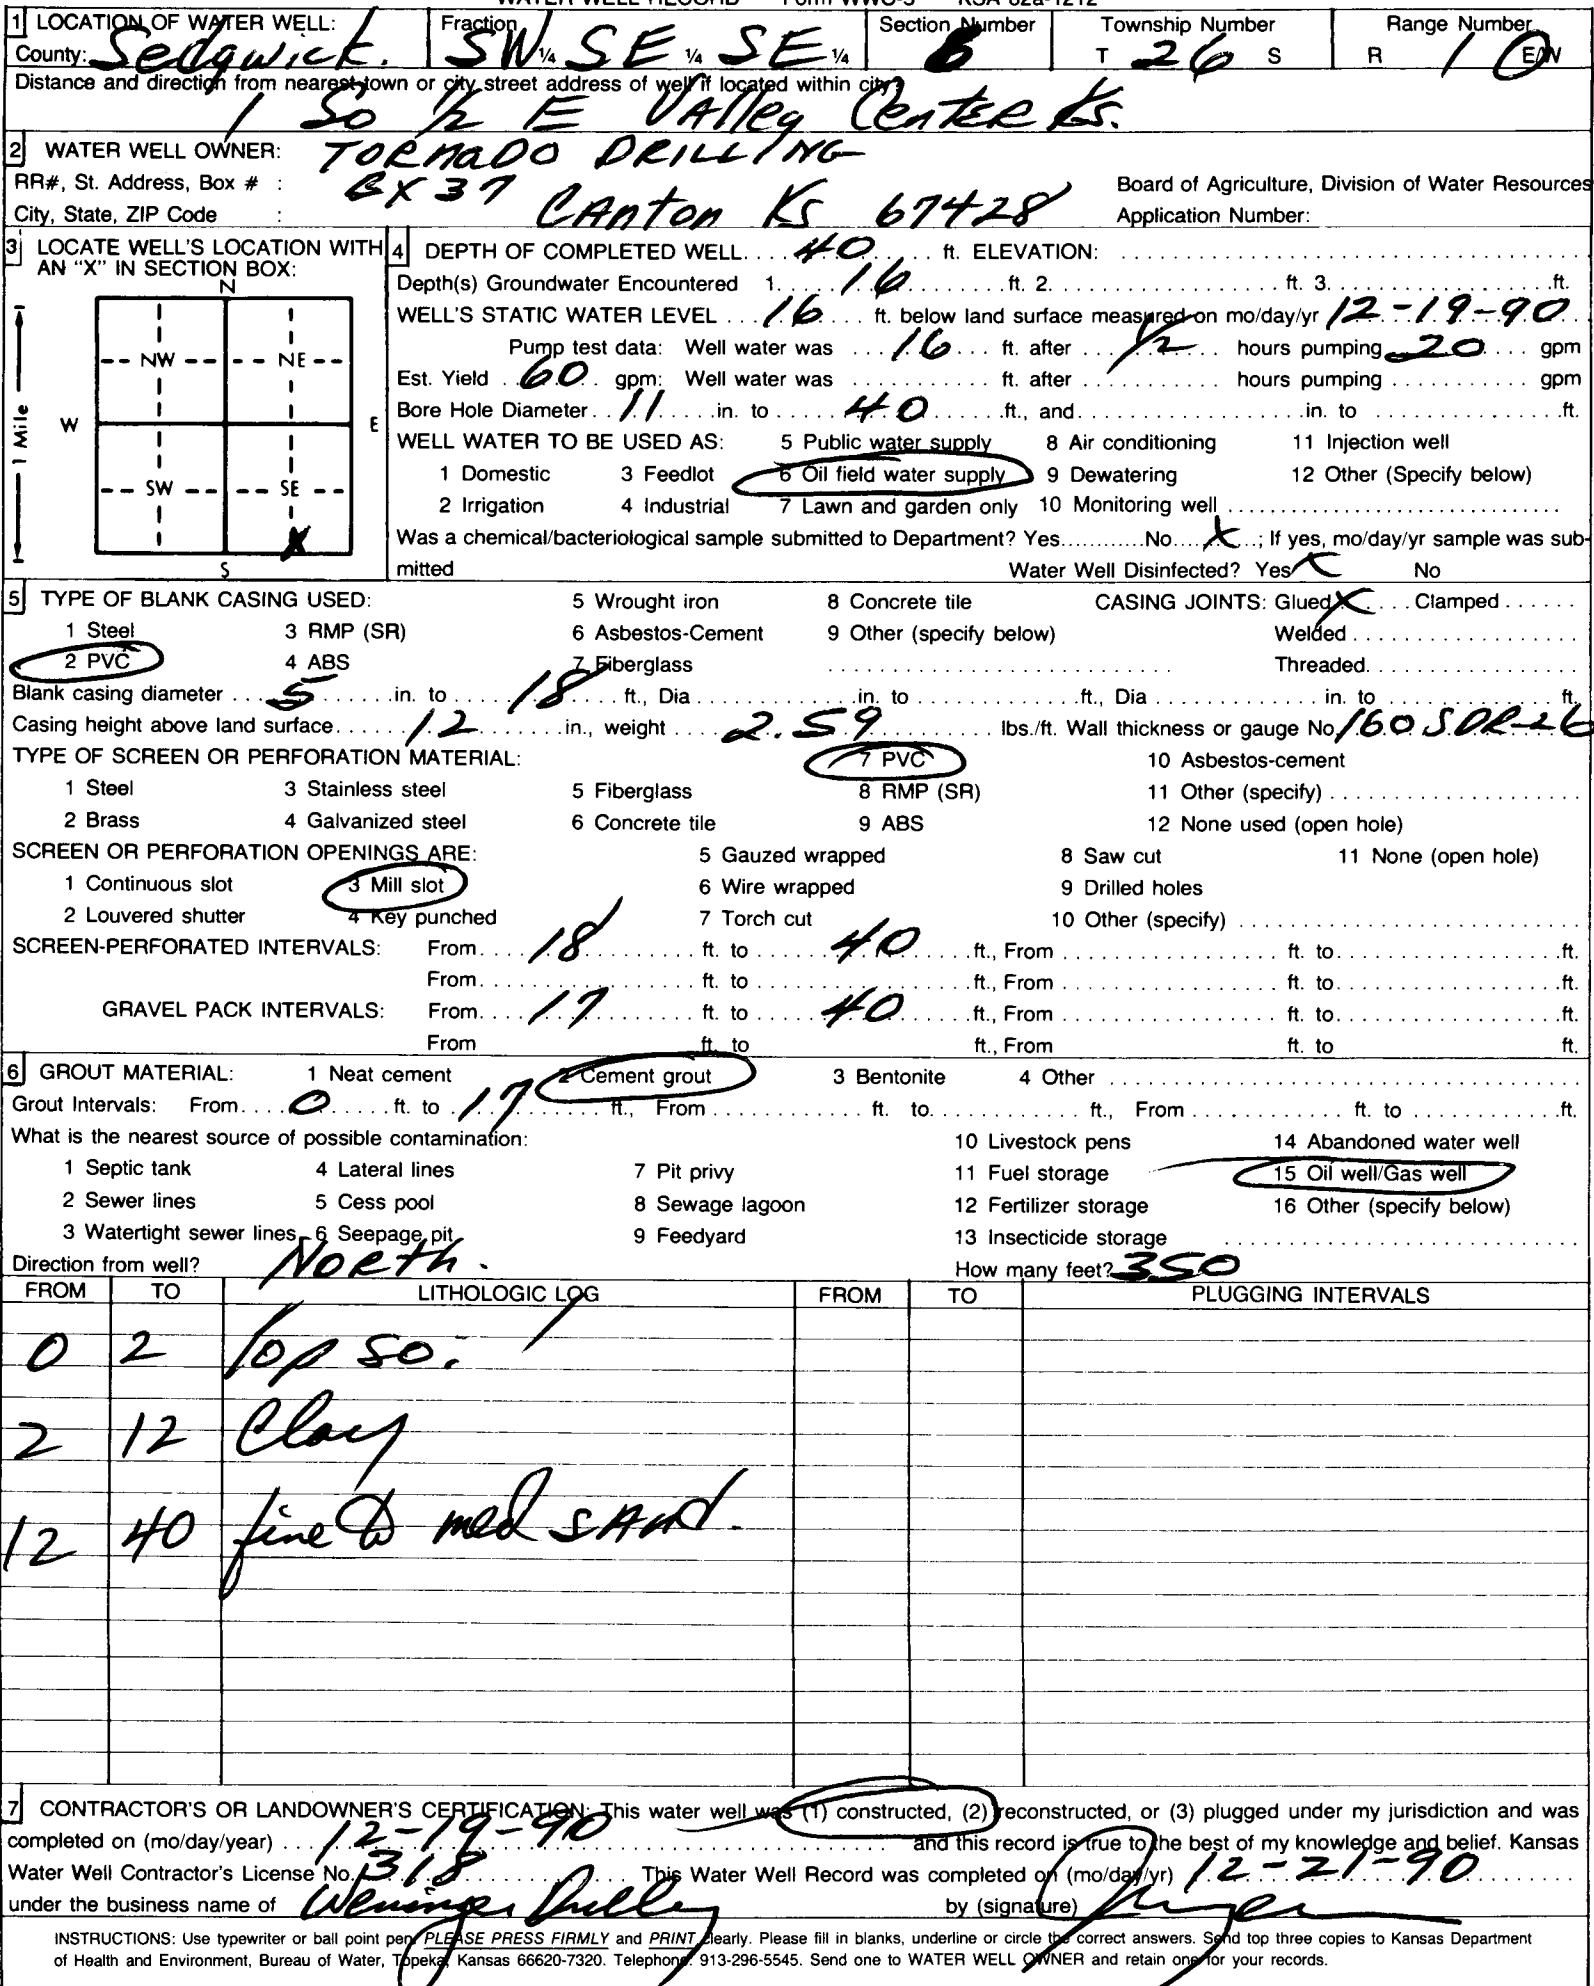 WATER WELL RECORD Form WWC-5 KSA 82a-1212
1 LOCATION OF WATER WELL: Fraction Section Number Township Number Range Number
County: Sedgwick. SW ¼ SE ¼ SE ¼ 6 T 26 S R 1 E/W
Distance and direction from nearest town or city street address of well if located within city?
1 So ½ E Valley Center Ks.
2 WATER WELL OWNER: TORNADO DRILLING
RR#, St. Address, Box # : BX 37 Board of Agriculture, Division of Water Resources
City, State, ZIP Code : CANton Ks 67428 Application Number:
3 LOCATE WELL'S LOCATION WITH AN "X" IN SECTION BOX:
N
NW NE
W E
1 Mile
SW SE
X
S
4 DEPTH OF COMPLETED WELL 40 ft. ELEVATION:
Depth(s) Groundwater Encountered 1. 16 ft. 2. ft. 3. ft.
WELL'S STATIC WATER LEVEL 16 ft. below land surface measured on mo/day/yr 12-19-90
Pump test data: Well water was 16 ft. after 1/2 hours pumping 20 gpm
Est. Yield 60 gpm: Well water was ft. after hours pumping gpm
Bore Hole Diameter 11 in. to 40 ft., and in. to ft.
WELL WATER TO BE USED AS: 5 Public water supply 8 Air conditioning 11 Injection well
1 Domestic 3 Feedlot 6 Oil field water supply 9 Dewatering 12 Other (Specify below)
2 Irrigation 4 Industrial 7 Lawn and garden only 10 Monitoring well
Was a chemical/bacteriological sample submitted to Department? Yes No X ; If yes, mo/day/yr sample was sub-
mitted Water Well Disinfected? Yes X No
5 TYPE OF BLANK CASING USED: 5 Wrought iron 8 Concrete tile CASING JOINTS: Glued X Clamped
1 Steel 3 RMP (SR) 6 Asbestos-Cement 9 Other (specify below) Welded
2 PVC 4 ABS 7 Fiberglass Threaded
Blank casing diameter 5 in. to 18 ft., Dia in. to ft., Dia in. to ft.
Casing height above land surface 12 in., weight 2.59 lbs./ft. Wall thickness or gauge No 160 SDR-26
TYPE OF SCREEN OR PERFORATION MATERIAL: 7 PVC 10 Asbestos-cement
1 Steel 3 Stainless steel 5 Fiberglass 8 RMP (SR) 11 Other (specify)
2 Brass 4 Galvanized steel 6 Concrete tile 9 ABS 12 None used (open hole)
SCREEN OR PERFORATION OPENINGS ARE: 5 Gauzed wrapped 8 Saw cut 11 None (open hole)
1 Continuous slot 3 Mill slot 6 Wire wrapped 9 Drilled holes
2 Louvered shutter 4 Key punched 7 Torch cut 10 Other (specify)
SCREEN-PERFORATED INTERVALS: From 18 ft. to 40 ft., From ft. to ft.
From ft. to ft., From ft. to ft.
GRAVEL PACK INTERVALS: From 17 ft. to 40 ft., From ft. to ft.
From ft. to ft., From ft. to ft.
6 GROUT MATERIAL: 1 Neat cement 2 Cement grout 3 Bentonite 4 Other
Grout Intervals: From 0 ft. to 17 ft., From ft. to ft., From ft. to ft.
What is the nearest source of possible contamination: 10 Livestock pens 14 Abandoned water well
1 Septic tank 4 Lateral lines 7 Pit privy 11 Fuel storage 15 Oil well/Gas well
2 Sewer lines 5 Cess pool 8 Sewage lagoon 12 Fertilizer storage 16 Other (specify below)
3 Watertight sewer lines 6 Seepage pit 9 Feedyard 13 Insecticide storage
Direction from well? North. How many feet? 350
FROM TO LITHOLOGIC LOG FROM TO PLUGGING INTERVALS
0 2 Top soil
2 12 Clay
12 40 fine to med sand.
7 CONTRACTOR'S OR LANDOWNER'S CERTIFICATION: This water well was (1) constructed, (2) reconstructed, or (3) plugged under my jurisdiction and was
completed on (mo/day/year) 12-19-90 and this record is true to the best of my knowledge and belief. Kansas
Water Well Contractor's License No. 318 This Water Well Record was completed on (mo/day/yr) 12-21-90
under the business name of Weninger Drilling by (signature)
INSTRUCTIONS: Use typewriter or ball point pen. PLEASE PRESS FIRMLY and PRINT clearly. Please fill in blanks, underline or circle the correct answers. Send top three copies to Kansas Department
of Health and Environment, Bureau of Water, Topeka, Kansas 66620-7320. Telephone: 913-296-5545. Send one to WATER WELL OWNER and retain one for your records.